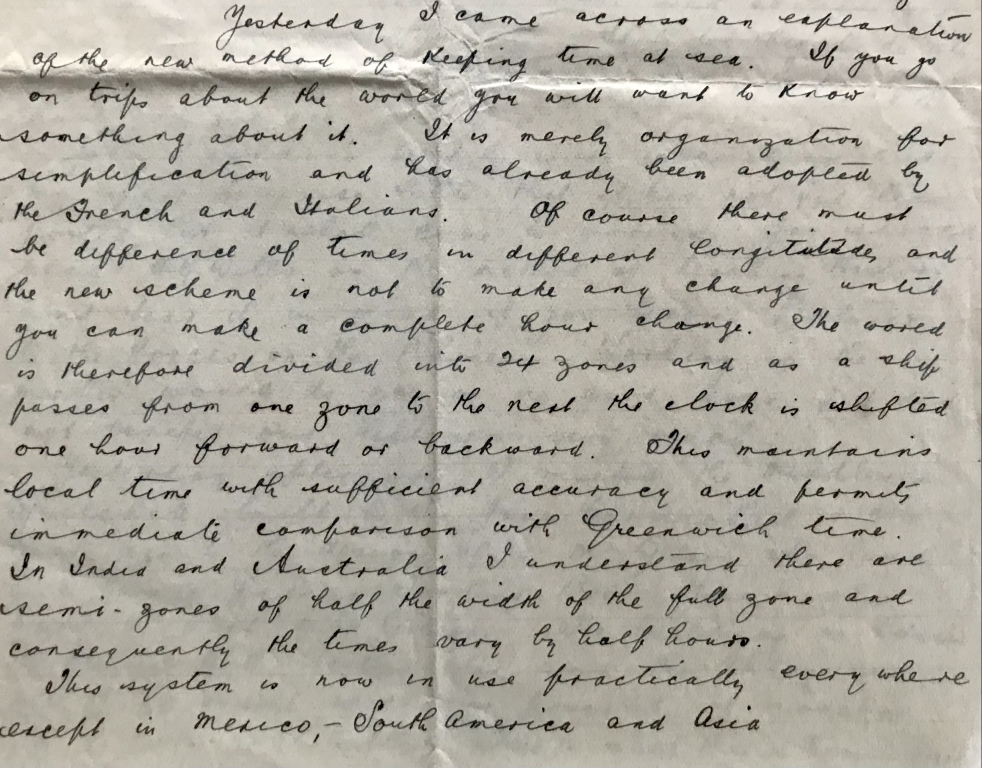 Yesterday I came across an explanation
of the new method of keeping time at sea. If you go
on trips about the world you will want to know
something about it. It is merely organization for
simplification and has already been adopted by
the French and Italians. Of course there must
be difference of times in different longitudes, and
the new scheme is not to make any change until
you can make a complete hour change. The world
is therefore divided into 24 zones and as a ship
passes from one zone to the next the clock is shifted
one hour forward or backward. This maintains
local time with sufficient accuracy and permits
immediate comparison with Greenwich time.
In India and Australia I understand there are
semi-zones of half the width of the full zone and
consequently the times vary by half hours.
This system is now in use practically everywhere
except in Mexico, - South America and Asia